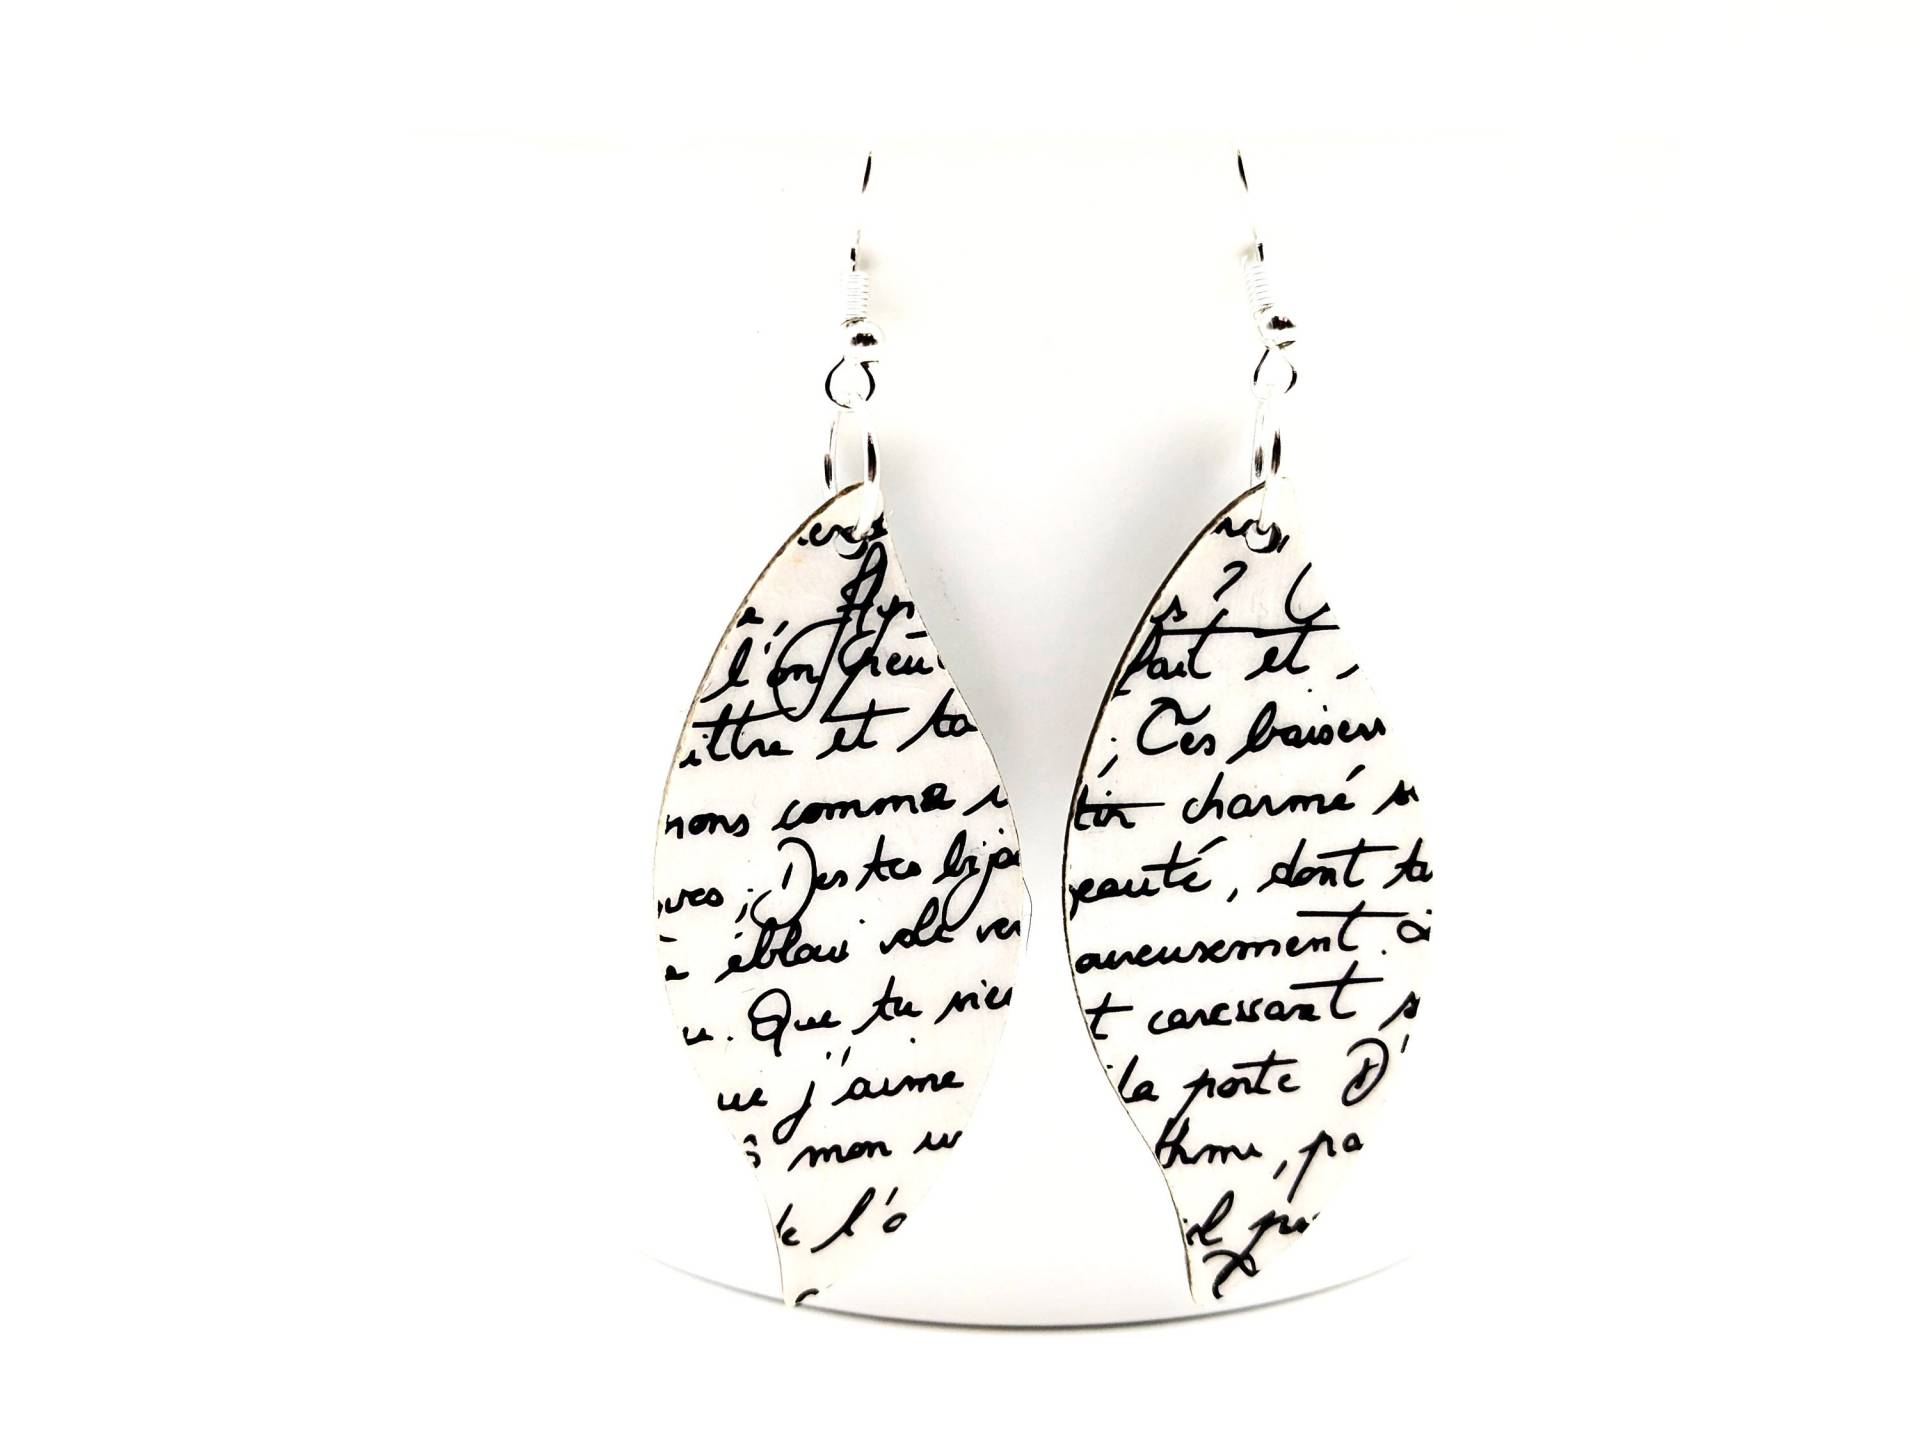 l'on peut
ittre et ta
nons comme
Des tes bijo
ébloui vole ver
Que tu vien
ue j'aime
mon
de l'o
?
fait et
; Tes baisers
tir charmé su
eauté, dont tu
oureusement. à
t caressant s
la porte D'
thme, pa
il